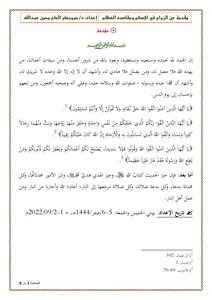 مقدمة عن الزواج في الإسلام ومقاصده العظام | إعداد: د/
مقدمة:
إن الحمد لله نحمده ونستعينه ونستغفره، ونعوذ بالله من شرور أنفسنا، ومن سيئات أعمالنا، من
يهده الله فلا مضل له، ومن يضلل فلا هادي له، وأشهد أن لا إله إلا الله وحده لا شريك له،
وأشهد أن محمدا عبده ورسوله - صلوات الله وسلامه عليه، وعلى آله وصحبه أجمعين، ومن تبعهم
بإحسان إلى يوم الدين.
﴿يَا أَيُّهَا الَّذِينَ آمَنُوا اتَّقُوا اللَّهَ حَقَّ تُقَاتِهِ وَلَا تَمُوتُنَّ إِلَّا وَأَنْتُمْ مُسْلِمُونَ﴾ 1.
﴿يَا أَيُّهَا النَّاسُ اتَّقُوا رَبَّكُمُ الَّذِي خَلَقَكُمْ مِنْ نَفْسٍ وَاحِدَةٍ وَخَلَقَ مِنْهَا زَوْجَهَا وَبَثَّ مِنْهُمَا رِجَالًا
كَثِيرًا وَنِسَاءً وَاتَّقُوا اللَّهَ الَّذِي تَسَاءَلُونَ بِهِ وَالْأَرْحَامَ إِنَّ اللَّهَ كَانَ عَلَيْكُمْ رَقِيبًا﴾ 2.
﴿يَا أَيُّهَا الَّذِينَ آمَنُوا اتَّقُوا اللَّهَ وَقُولُوا قَوْلًا سَدِيدًا، يُصْلِحْ لَكُمْ أَعْمَالَكُمْ وَيَغْفِرْ لَكُمْ ذُنُوبَكُمْ وَمَنْ
يُطِعِ اللَّهَ وَرَسُولَهُ فَقَدْ فَازَ فَوْزًا عَظِيمًا﴾ 3.
أما بعد: فإن خير الحديث كتاب الله، وخير الهدي هدي محمد ﷺ، وشر الأمور محدثاتها، وكل
محدثة بدعة، وكل بدعة ضلالة، وكل ضلالة
عمل أهل النار.
تاريخ الإعداد: يومي الخميس والجمعة: 5-6/صفر/1444هـ، = 1-2/09/2022م.
1
2
3